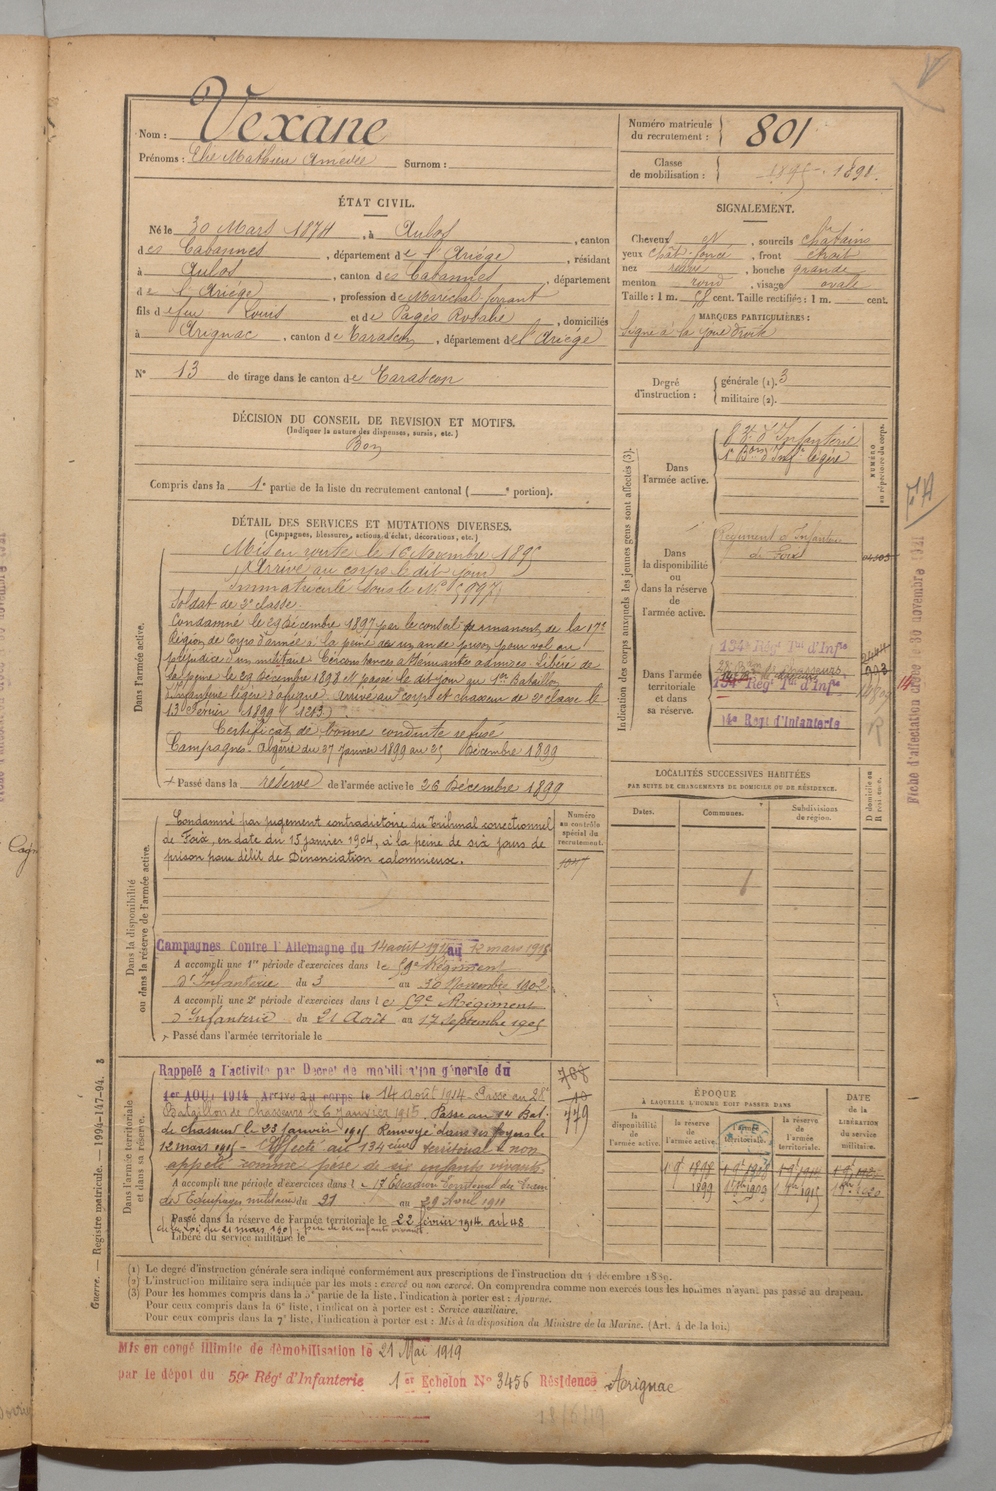 Nom : Vexane
Prénoms : Elie Mathieu Amédée Surnom :
Numéro matricule
du recrutement : 801
Classe
de mobilisation : 1895 - 1890.
ÉTAT CIVIL.
Né le 30 Mars 1874, à Aulos, canton
des Cabannes, département de l'Ariège, résidant
à Aulos, canton des Cabannes, département
de l'Ariège, profession de Maréchal ferrant
fils de feu Louis et de Pagès Rosalie, domiciliés
à Arignac, canton de Tarascon, département de l'Ariège
N° 13 de tirage dans le canton de Tarascon
SIGNALEMENT.
Cheveux et, sourcils châtains
yeux chât. foncé, front étroit
nez, bouche grande
menton rond, visage ovale
Taille : 1 m. cent. Taille rectifiée : 1 m. cent.
MARQUES PARTICULIÈRES :
Signe à la joue droite
Degré
d'instruction :
générale (1). 3
militaire (2).
DÉCISION DU CONSEIL DE REVISION ET MOTIFS.
(Indiquer la nature des dispenses, sursis, etc.)
Bon
Compris dans la 1e partie de la liste du recrutement cantonal ( e portion).
DÉTAIL DES SERVICES ET MUTATIONS DIVERSES.
(Campagnes, blessures, actions d'éclat, décorations, etc.)
Dans l'armée active.
Mis en route le 16 Novembre 1895
Arrivé au corps le dit jour
Immatriculé sous le N°
Soldat de 2e classe
Condamné le 29 Décembre 1897 par le conseil permanent de la 17e
Région de Corps d'armée à la peine de un an de prison pour vol au
préjudice d'un militaire. Circonstances atténuantes admises. Libéré de
la peine le 29 Décembre 1898 Passé le dit jour au 1er Bataillon
d'Infanterie légère d'afrique. Arrivé au corps et chasseur de 2e classe le
13 Février 1899
Certificat de bonne conduite refusé
Campagnes. Algérie du 27 Janvier 1899 au 25 Décembre 1899
Passé dans la réserve de l'armée active le 26 Décembre 1899
Indication des corps auxquels les jeunes gens sont affectés (3).
NUMÉRO
au répertoire du corps.
Dans
l'armée active.
83e d'Infanterie
1er Bon d'Inf. légère
Dans
la disponibilité
ou
dans la réserve
de
l'armée active.
Régiment d'Infanterie
de Foix
Dans l'armée
territoriale
et dans
sa réserve.
134e Régt Tal d'Infie
134e Régt Tal d'Infie
14e Regt d'Infanterie
Fiche d'affectation créée le 30 novembre 1921
LOCALITÉS SUCCESSIVES HABITÉES
PAR SUITE DE CHANGEMENTS DE DOMICILE OU DE RÉSIDENCE.
Dates. Communes. Subdivisions
de région.
D domicile ou
R résidence.
Dans la disponibilité
ou dans la réserve de l'armée active.
Numéro
au contrôle
spécial du
recrutement.
Condamné par jugement contradictoire du Tribunal correctionnel
de Foix, en date du 15 janvier 1904, à la peine de six jours de
prison pour délit de Dénonciation calomnieuse.
Campagnes Contre l'Allemagne du 14 août 1914 au 12 mars 1915
A accompli une 1re période d'exercices dans le 59e Régiment
d'Infanterie du 3 au 30 Novembre 1902
A accompli une 2e période d'exercices dans le 59e Régiment
d'Infanterie du 21 Août au 17 Septembre 1905
Passé dans l'armée territoriale le
Dans l'armée territoriale
et dans sa réserve.
Rappelé a l'activité par Décret de mobilisation générale du
1er AOUT 1914. Arrivé au corps le 14 août 1914. Passé au 28e
Bataillon de chasseurs le 6 Janvier 1915. Passé au 14 Bat.
de chasseurs le 23 janvier 1915 Renvoyé dans ses foyers le
12 mars 1915 - Affecté au 134 ème territorial et non
appelé comme père de six enfants vivants.
A accompli une période d'exercices dans le 17 Escadron Territorial du Train
des Equipages militaires du 21 au 29 Avril 1911
Passé dans la réserve de l'armée territoriale le 22 février 1914. art 48
de la loi du 21 mars 1905, père de six enfants vivants.
Libéré du service militaire le
788
779
ÉPOQUE
À LAQUELLE L'HOMME DOIT PASSER DANS
DATE
de la
LIBÉRATION
du service
militaire.
la
disponibilité
de l'armée active.
la réserve
de
l'armée active.
l'armée
territoriale.
la réserve
de
l'armée
territoriale.
(1) Le degré d'instruction générale sera indiqué conformément aux prescriptions de l'instruction du 4 décembre 1889.
(2) L'instruction militaire sera indiquée par les mots : exercé ou non exercé. On comprendra comme non exercés tous les hommes n'ayant pas passé au drapeau.
(3) Pour les hommes compris dans la 5e partie de la liste, l'indication à porter est : Ajourné.
Pour ceux compris dans la 6e liste, l'indication à porter est : Service auxiliaire.
Pour ceux compris dans la 7e liste, l'indication à porter est : Mis à la disposition du Ministre de la Marine. (Art. 4 de la loi.)
Guerre. — Registre matricule. — 1994-147-94. 3
Mis en congé illimité de démobilisation le 21 Mai 1919
par le dépot du 59e Régt d'Infanterie 1er Echelon N° 3456 Résidence Arignac